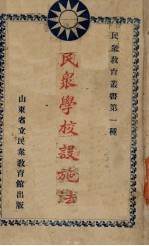 民眾教育叢書第一種
民眾學校設施法
山東省立民眾教育館出版